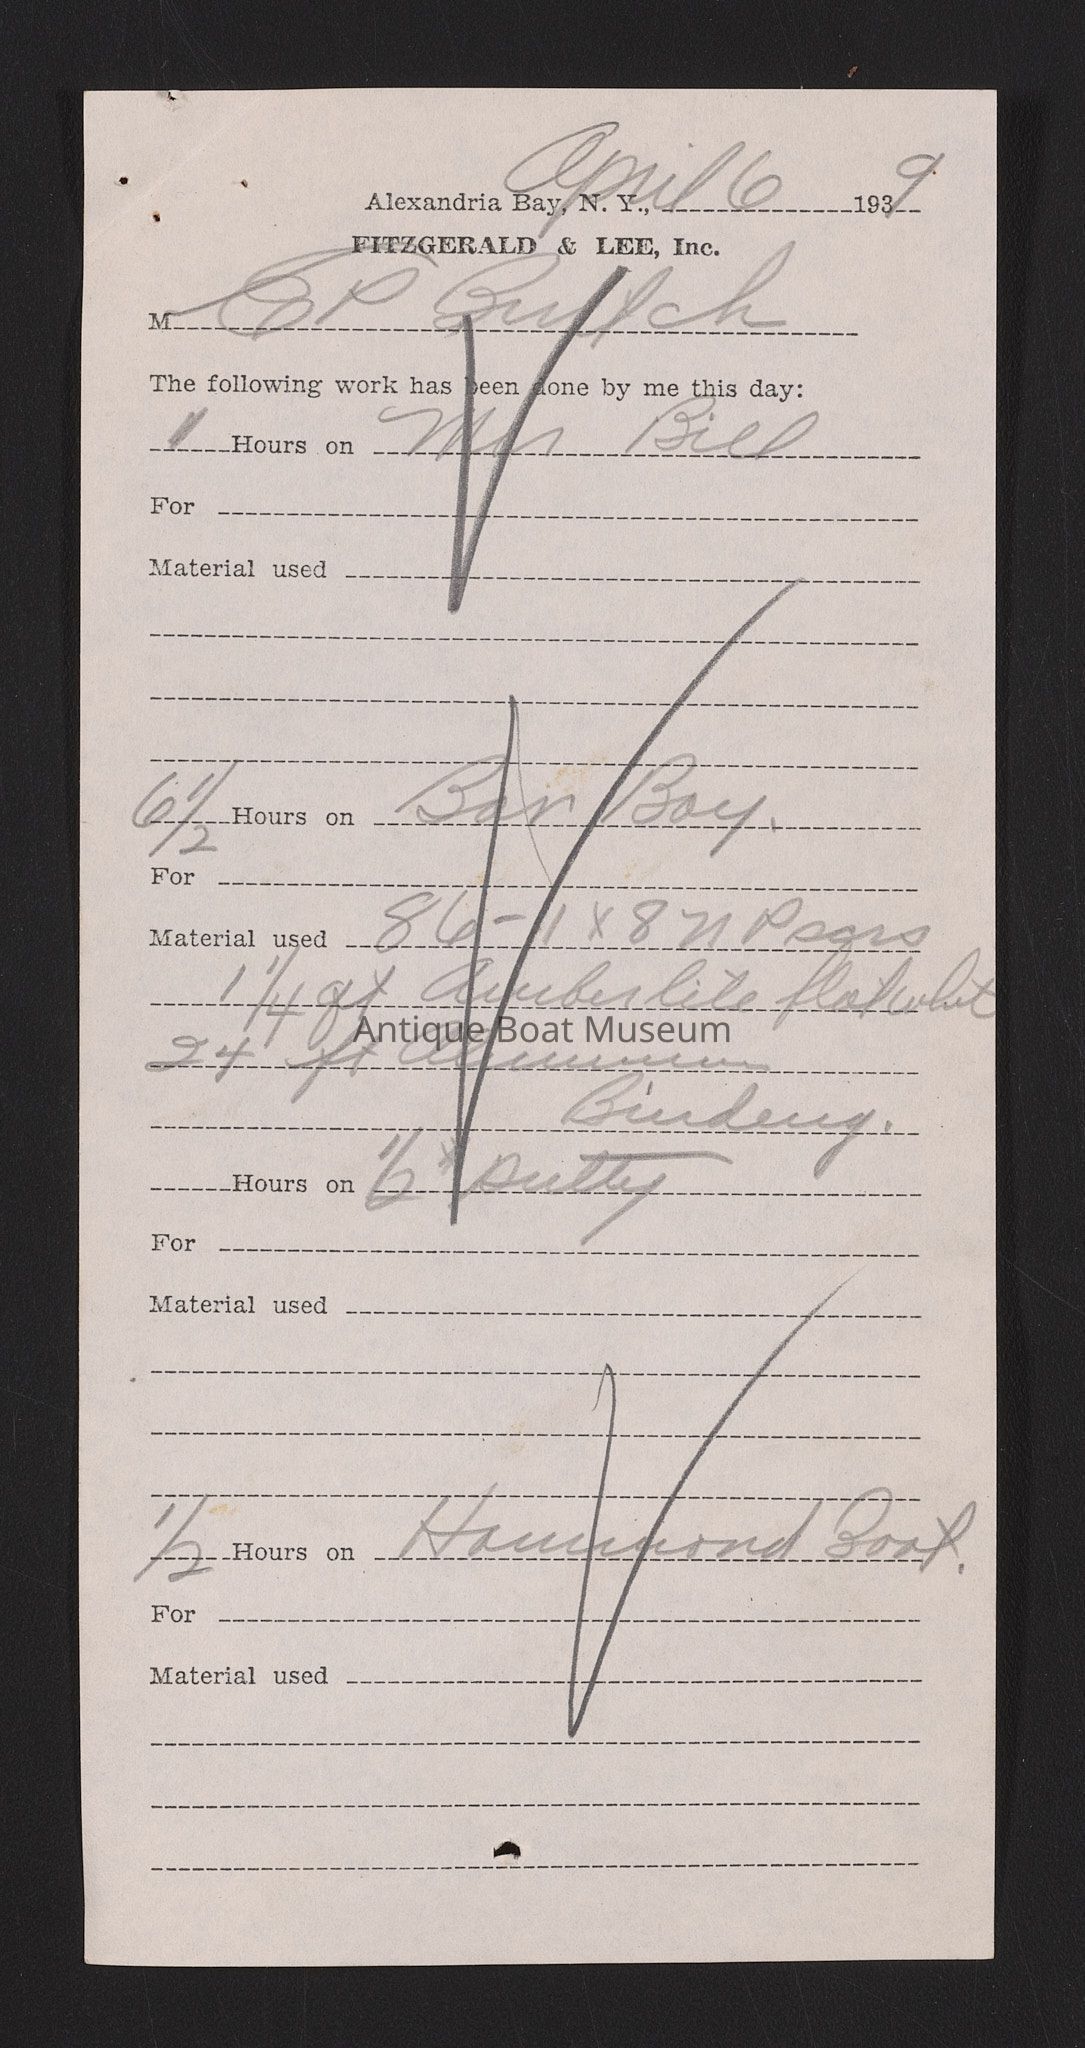 April 6 9
Alexandria Bay, N. Y., 193
FITZGERALD & LEE, Inc.
M E P Butch
The following work has been done by me this day:
1 Hours on Mr Bill
For
Material used
6 1/2 Hours on Bar Boy.
For
Material used 86 - 1 x 8 N P
1 1/4 qt Amberlite flat whit
Antique Boat Museum
24 ft Aluminum
Binding.
Hours on 1/2 # Putty
For
Material used
1/2 Hours on Hammond Boat.
For
Material used